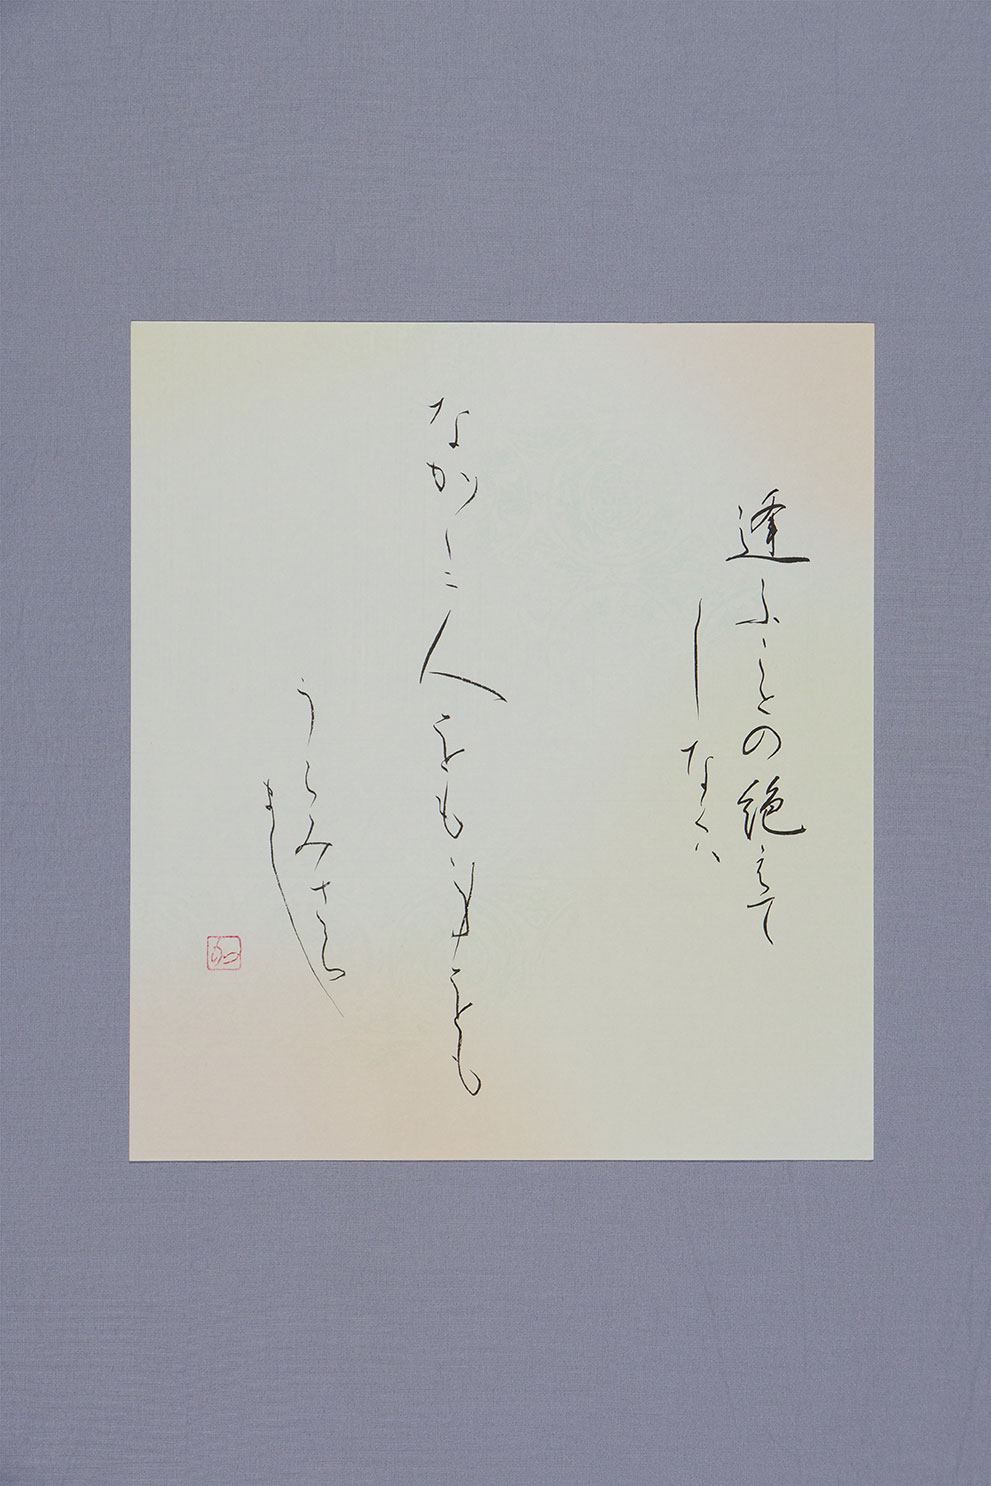 逢ふことの絶えて
しなくハ
なかゝニ人をも身をも
うらみさら
まし